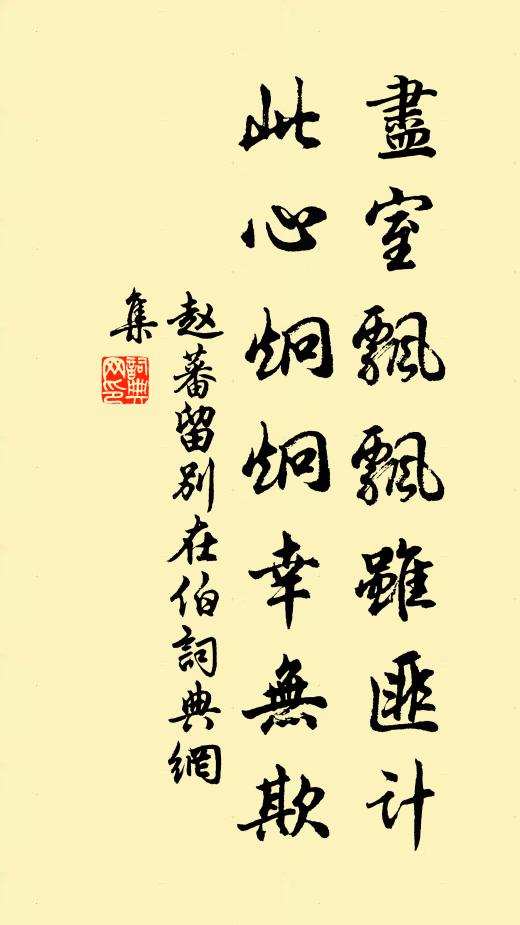 盡室飄飄雖匪計
此心炯炯幸無欺
赵蕃留别在伯詞典網
集
詞典
网印